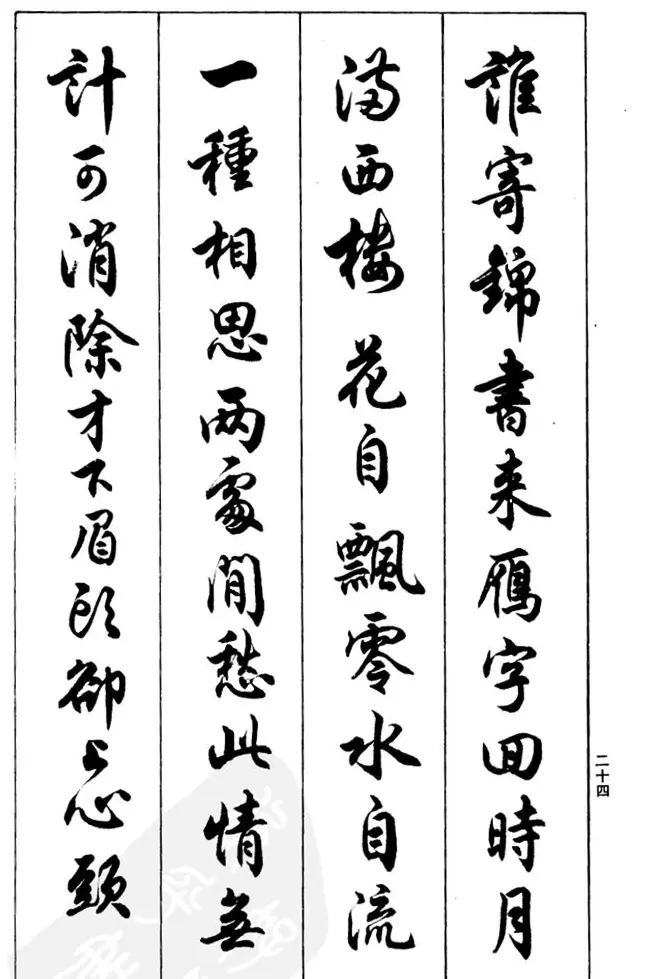 誰寄錦書來雁字回時月
滿西樓花自飄零水自流
一種相思兩處閒愁此情無
計可消除才下眉頭卻上心頭
二十四